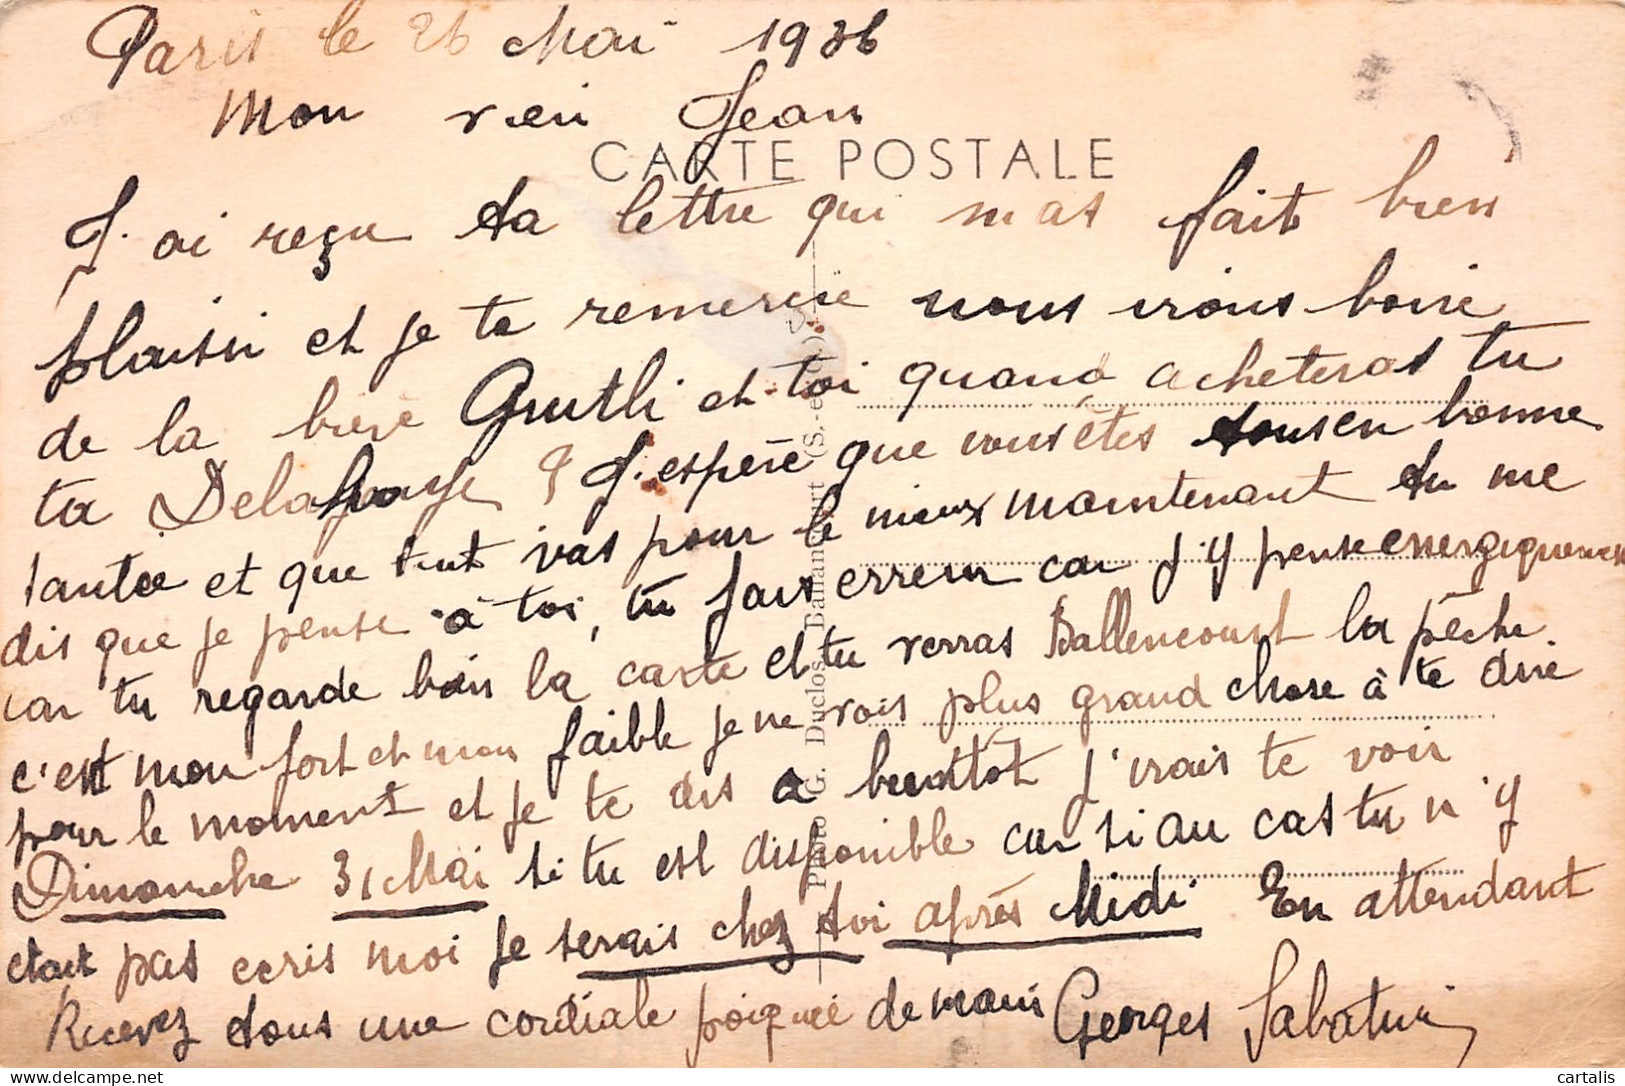 Paris le 26 Mai 1936
Mon vieu Jean
CARTE POSTALE
J'ai reçu ta lettre qui mas fait bien
plaisir et je te remercie nous irons boire
de la bière Grutli et toi quand acheteras tu
ta Delahaye ? J'espère que vous êtes tous en bonne
santée et que tout vas pour le mieux maintenant tu me
dis que je pense à toi, tu fais erreur car j'y pense energiquement
car tu regarde bien la carte et tu verras Ballencourt la pêche.
c'est mon fort et mon faible je ne vois plus grand chose à te dire
pour le moment et je te dis a bientôt j'irais te voir
Dimanche 31 Mai si tu est disponible car si au cas tu n'y
etait pas ecris moi je serais chez toi après Midi En attendant
Recevez tous une cordiale poignée de main Georges Sabatini
Photo G. Duclos, Ballancourt (S.-et-O.)
cartalis